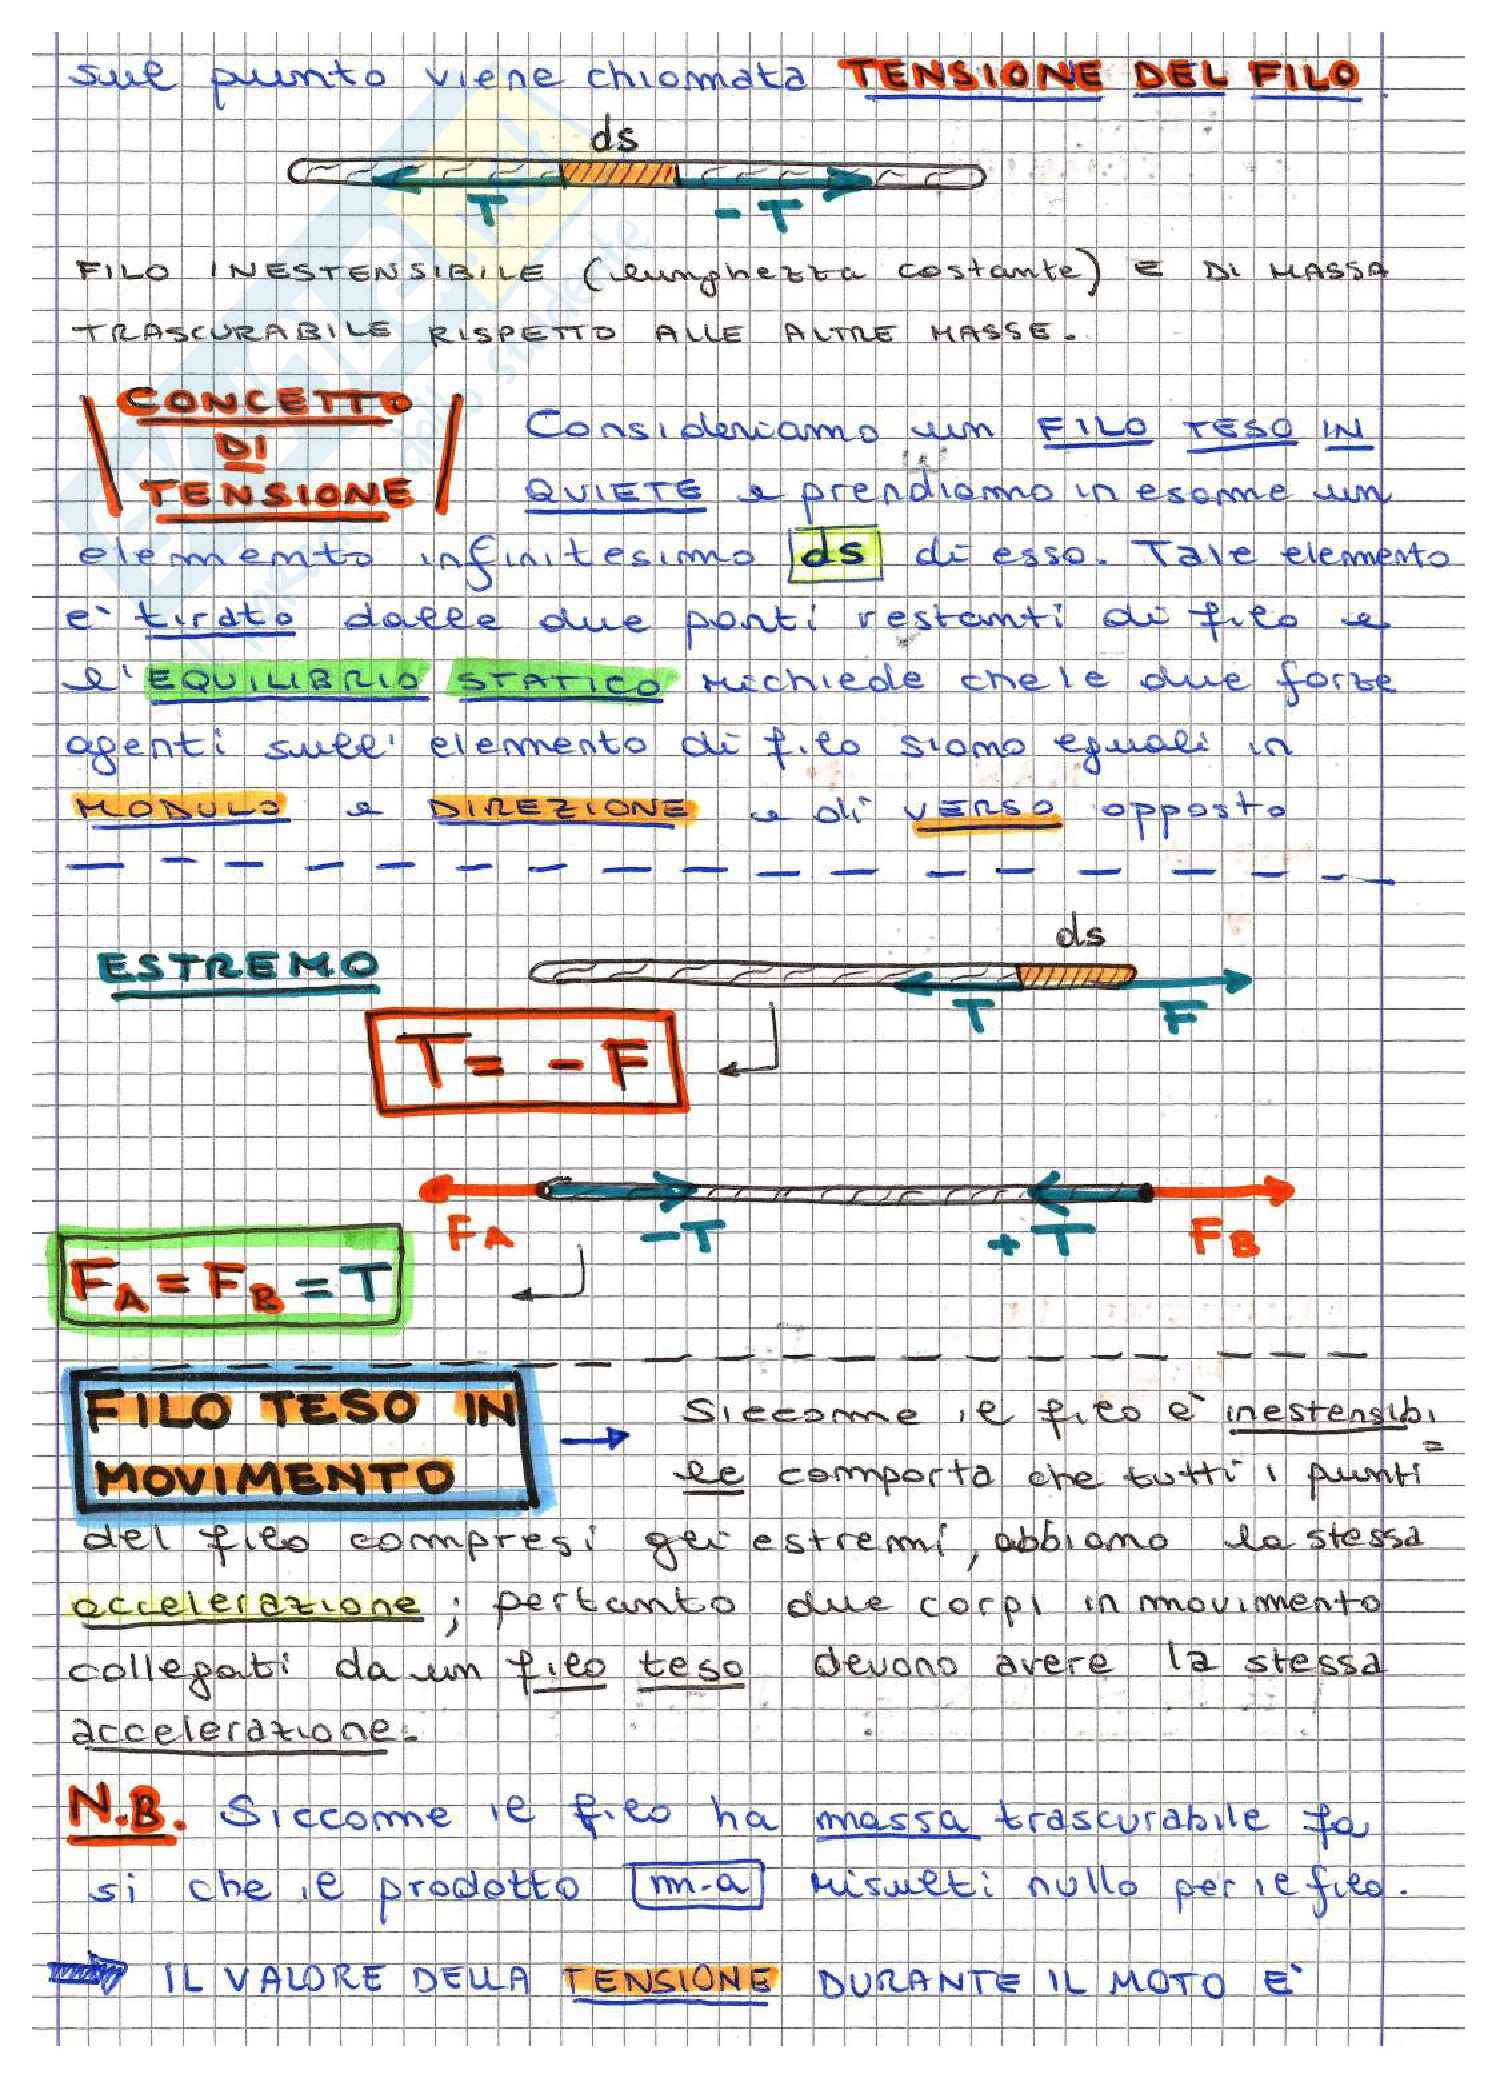 sul punto viene chiamata TENSIONE DEL FILO
ds
T - T
FILO INESTENSIBILE (lunghezza costante) E DI MASSA
TRASCURABILE RISPETTO ALLE ALTRE MASSE.
CONCETTO
DI
TENSIONE
Consideriamo un FILO TESO IN
QUIETE e prendiamo in esame un
elemento infinitesimo ds di esso. Tale elemento
e' tirato dalle due parti restanti di filo e
l'EQUILIBRIO STATICO richiede che le due forze
agenti sull' elemento di filo siano eguali in
MODULO e DIREZIONE e di VERSO opposto
ESTREMO
ds
T F
T = - F
FA -T + T FB
FA = FB = T
FILO TESO IN
MOVIMENTO
Siccome il filo e' inestensibi=
le comporta che tutti i punti
del filo compresi gli estremi, abbiano la stessa
accelerazione; pertanto due corpi in movimento
collegati da un filo teso devono avere la stessa
accelerazione.
N.B. Siccome il filo ha massa trascurabile fa
si che il prodotto m·a risulti nullo per il filo.
IL VALORE DELLA TENSIONE DURANTE IL MOTO E'